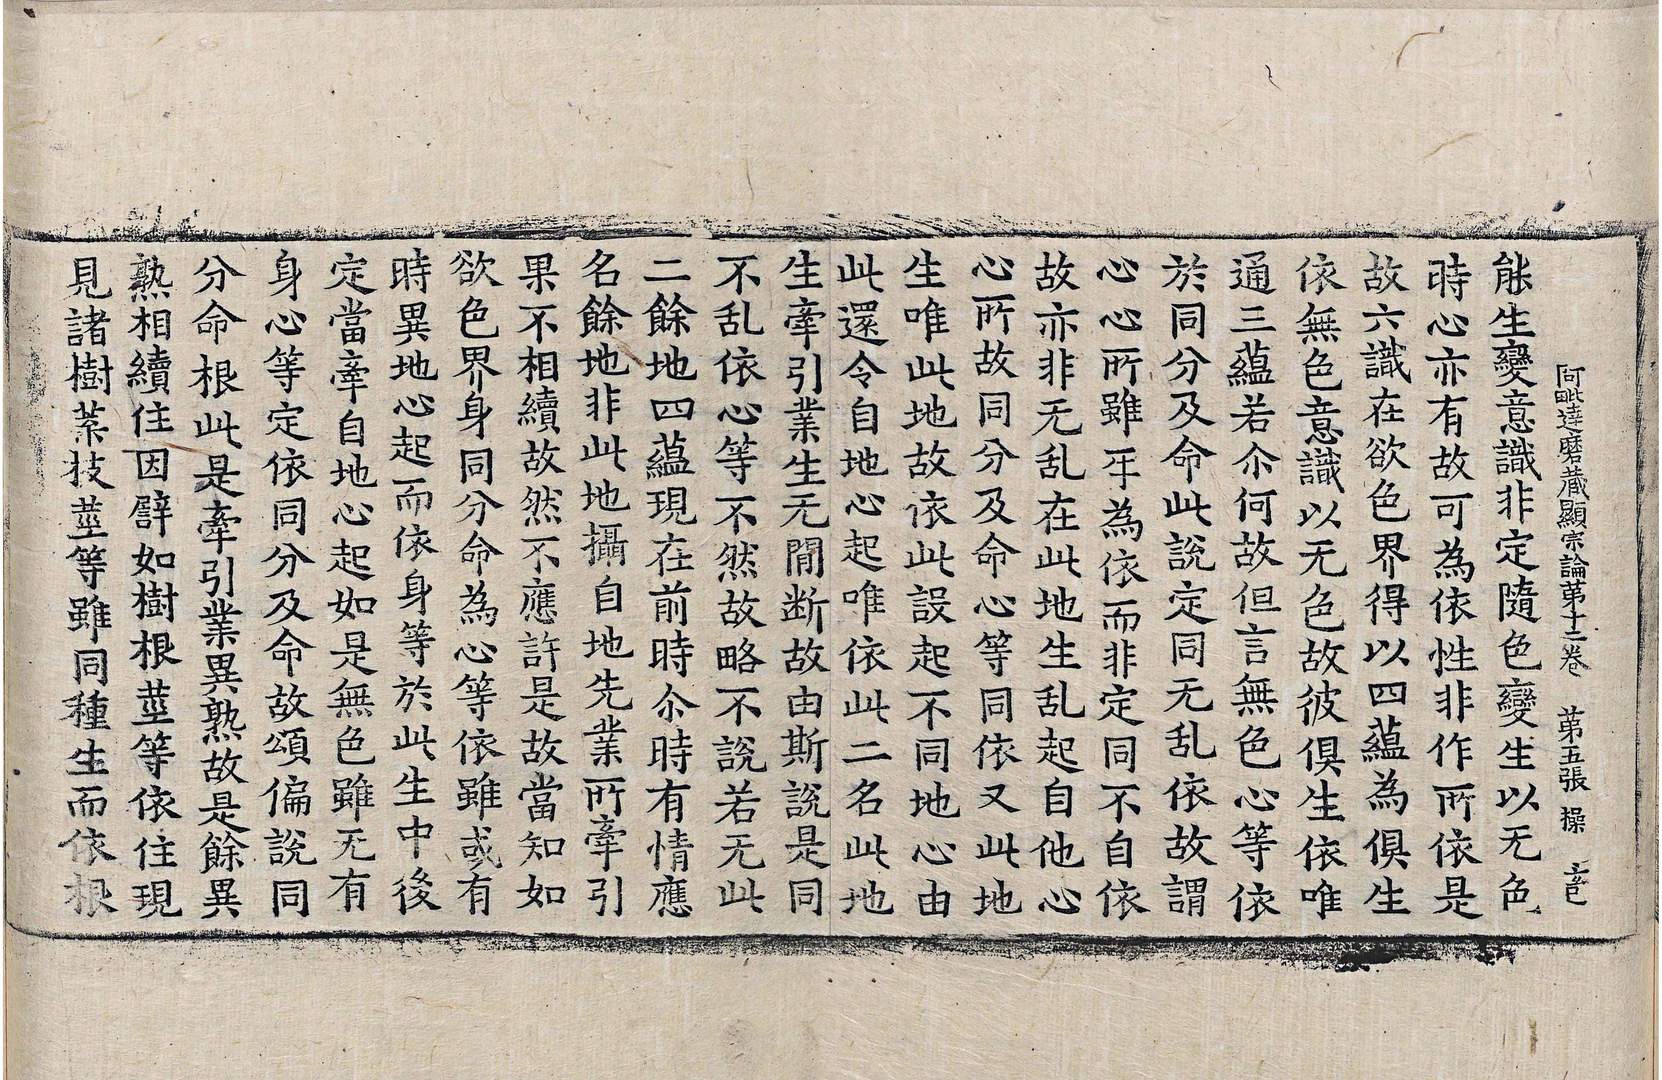 阿毗達磨蔵顯宗論苐十二巻　苐五張　操
能生變意識非定隨色變生以无色
時心亦有故可為依性非作所依是
故六識在欲色界得以四蘊為俱生
依無色意識以无色故彼俱生依唯
通三蘊若尒何故但言無色心等依
於同分及命此說定同无乱依故謂
心心所雖𤓰為依而非定同不自依
故亦非无乱在此地生乱起自他心
心所故同分及命心等同依又此地
生唯此地故依此設起不同地心由
此還令自地心起唯依此二名此地
生牽引業生无間断故由斯說是同
不乱依心等不然故略不說若无此
二餘地四蘊現在前時尒時有情應
名餘地非此地攝自地先業所牽引
果不相續故然不應許是故當知如
欲色界身同分命為心等依雖或有
時異地心起而依身等於此生中後
定當牽自地心起如是無色雖无有
身心等定依同分及命故頌偏說同
分命根此是牽引業異熟故是餘異
熟相續住因譬如樹根莖等依住現
見諸樹葉技莖等雖同種生而依根